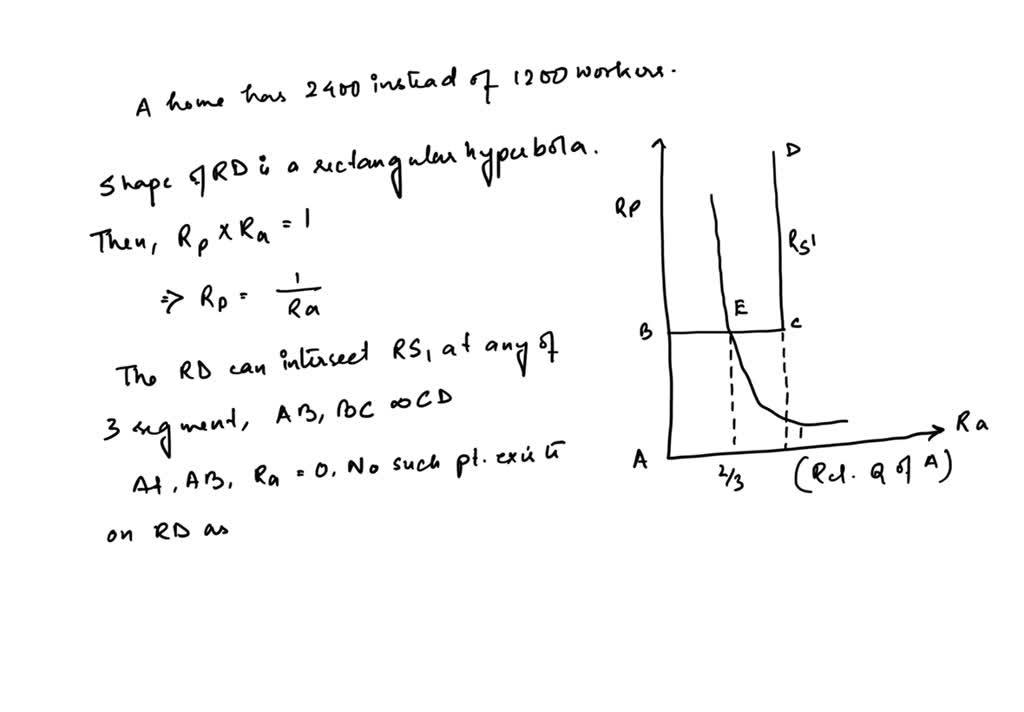 A home has 2400 instead of 1200 workers.
Shape of RD is a rectangular hyperbola.
Then, Rp × Ra = 1
⇒ Rp = 1/Ra
The RD can intersect RS1 at any of
3 segment, AB, BC or CD
At, AB, Ra = 0. No such pt. exists
on RD as
D
RP
RS1
E
B
C
Ra
A
2/3
1
(Rel. Q of A)